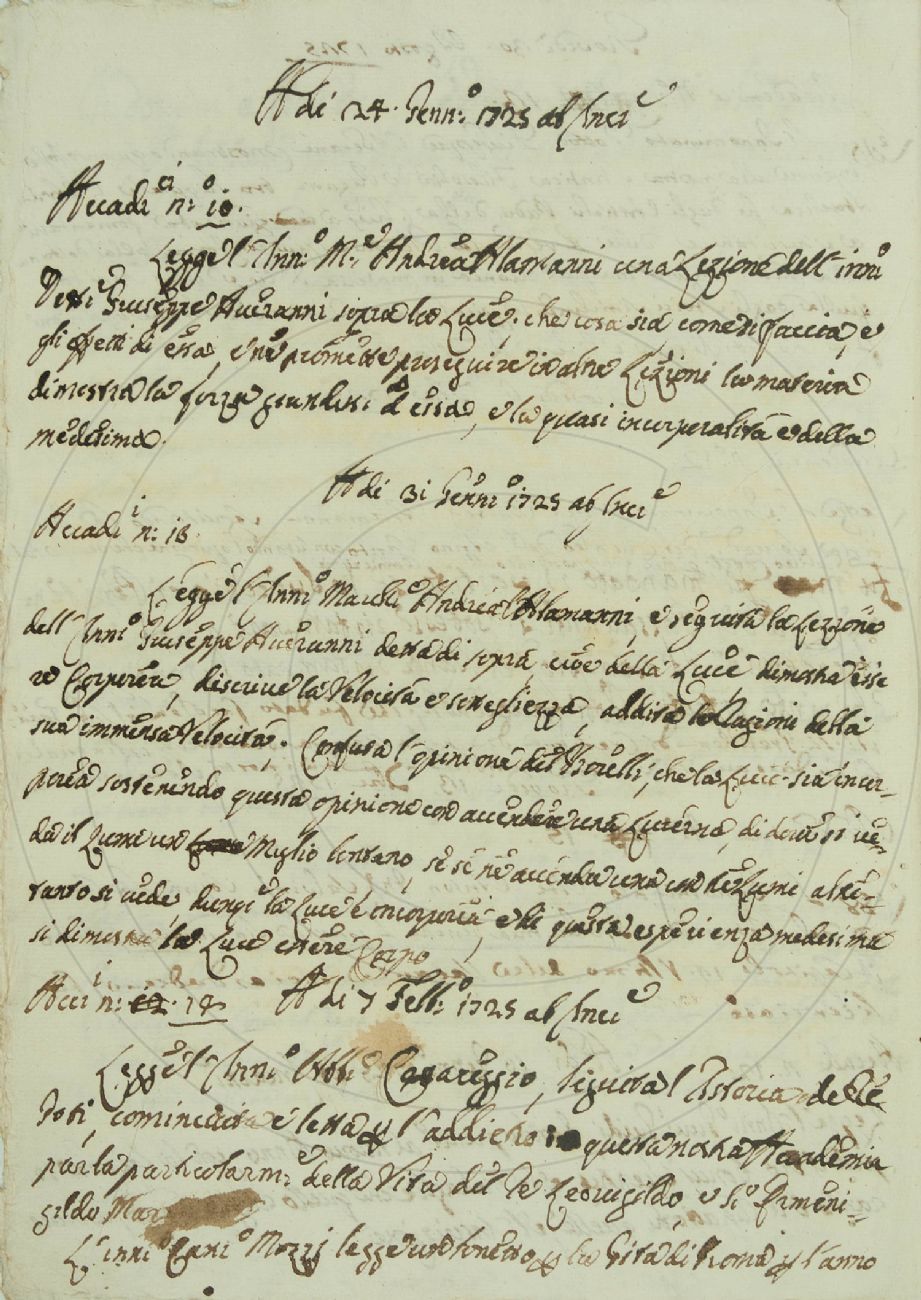 A di 24. Genn:o 1725 ab Inc:e
Accadi:ci n:o 10.
Legge l'Inn:o M:e Andrea Alamanni una Lezione dell'inn:o
Giuseppe Averanni sopra la Luce, che cosa sia, come si faccia, e
gli effetti di essa, e ne promette proseguire in altre Lezioni la materia
dimostra la forza grandiss: di essa, e la quasi incorporalità della
medesima.
A di 31 Genn:o 1725 ab Inc:e
Accadi:i n: 18.
Legge l'Inn:o March:e Andrea Alamanni, e seguita la Lezzione
dell'Inn:o Giuseppe Averanni detta di sopra, cioè della Luce dimostra esse
re Corporea, discrive la Velocità e sottigliezza, addita le Ragioni della
sua immensa Velocità. Confuta l'opinione del Borelli, che la Luce sia incor-
porea sostenendo questa opinione con accendere una Lucerna, di dove si ve-
da il Lume un Miglio lontano, se se ne accenda una con tre Lumi altret-
tanto si vede, dunq:e la Luce è incorporea, e di questa esperienza medesima
si dimostra la Luce essere Corpo
Acc:i n: 14 A di 7 Febb:o 1725 ab Inc:e
Legge l'Inn:o Abb:e Casaregio, seguita l'Istoria de Re
Goti, cominciata e letta p l'addietro in questa nostra Accademia
parla particolarm:e della Vita del Re Leovigildo, e S:o Ermeni-
gildo Mar
L'inn:o Can:o Mozzi legge un sonetto p la Gita di Roma p l'anno